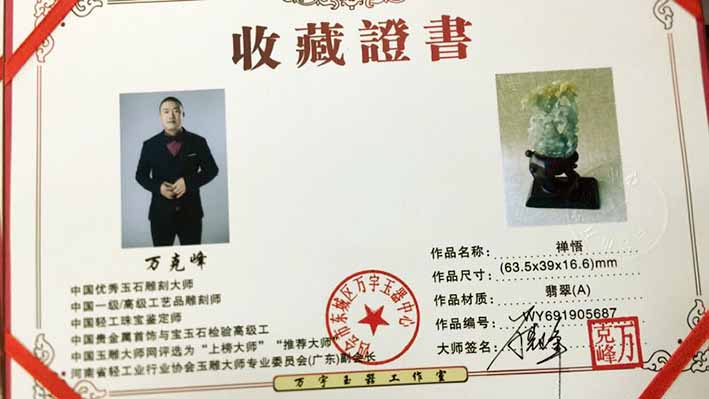 收藏證書
万克峰
中国优秀玉石雕刻大师
中国一级/高级工艺品雕刻师
中国轻工珠宝鉴定师
中国贵金属首饰与宝玉石检验高级工
中国玉雕大师网评选为“上榜大师”“推荐大师”
河南省轻工业行业协会玉雕大师专业委员会(广东)副会长
作品名称: 禅悟
作品尺寸: (63.5x39x16.6)mm
作品材质: 翡翠(A)
作品编号: WY691905687
大师签名:
万克峰
市东城区万宇玉器中心
万宇玉器工作室